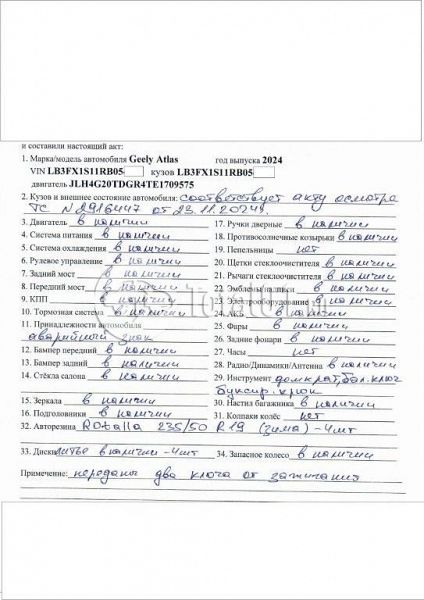 и составили настоящий акт:
1. Марка/модель автомобиля Geely Atlas год выпуска 2024
VIN LB3FX1S11RB05 кузов LB3FX1S11RB05
двигатель JLH4G20TDGR4TE1709575
2. Кузов и внешнее состояние автомобиля: соответствует акту осмотра
ТС N 2916447 от 23.11.2024г.
3. Двигатель в наличии 17. Ручки дверные в наличии
4. Система питания в наличии 18. Противосолнечные козырьки в наличии
5. Система охлаждения в наличии 19. Пепельницы нет
6. Рулевое управление в наличии 20. Щетки стеклоочистителя в наличии
7. Задний мост в наличии 21. Рычаги стеклоочистителя в наличии
8. Передний мост в наличии 22. Эмблемы/надписи в наличии
9. КПП в наличии 23. Электрооборудование в наличии
10. Тормозная система в наличии 24. АКБ в наличии
11. Принадлежности автомобиля 25. Фары в наличии
аварийный знак 26. Задние фонари в наличии
12. Бампер передний в наличии 27. Часы нет
13. Бампер задний в наличии 28. Радио/Динамики/Антенна в наличии
14. Стёкла салона в наличии 29. Инструмент домкрат, бал. ключ
буксир. крюк
15. Зеркала в наличии 30. Настил багажника в наличии
16. Подголовники в наличии 31. Колпаки колёс нет
32. Авторезина Rotalla 235/50 R19 (зима) - 4шт
33. Диски литье в наличии - 4шт 34. Запасное колесо в наличии
Примечание: переданы два ключа от зажигания